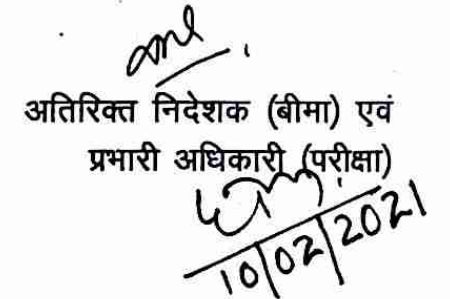 अतिरिक्त निदेशक (बीमा) एवं
प्रभारी अधिकारी (परीक्षा)
10/02/2021